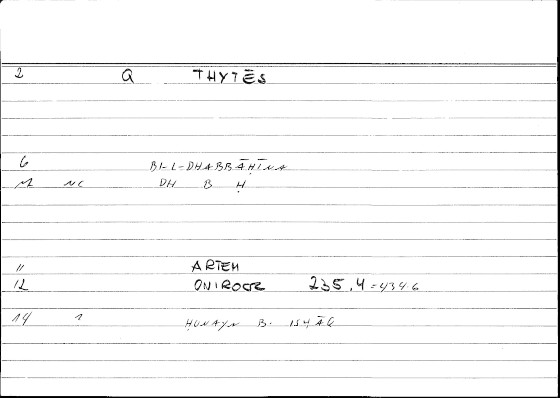 2 Q THYTĒS
6 BI-L-DHABBĀḤĪNA
NC DH B Ḥ
11 ARTEM
12 ONIROCR 235,4=4346
14 1 ḤUNAYN B. ISḤĀQ